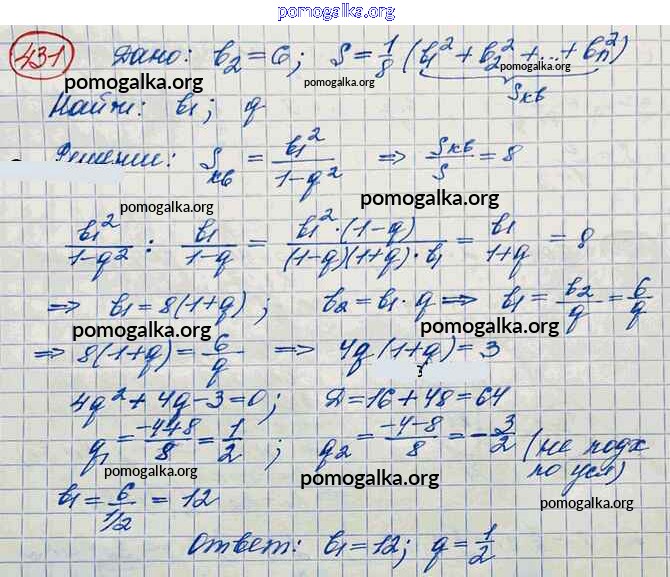 pomogalka.org
431 Дано: b₂ = 6; S = 1/8 (b₁² + b₂² + ... + bₙ²)
pomogalka.org
pomogalka.org
Sкв
Найти: b₁; q
Решение: Sкв = b₁²/(1-q²) => Sкв/S = 8
pomogalka.org
pomogalka.org
b₁²/(1-q²) : b₁/(1-q) = b₁²·(1-q)/((1-q)(1+q)·b₁) = b₁/(1+q) = 8
=> b₁ = 8(1+q); b₂ = b₁·q => b₁ = b₂/q = 6/q
pomogalka.org
pomogalka.org
=> 8(1+q) = 6/q => 4q(1+q) = 3
4q² + 4q - 3 = 0; Д = 16 + 48 = 64
pomogalka.org
q₁ = (-4+8)/8 = 1/2; q₂ = (-4-8)/8 = -3/2 (не подх
по усл)
pomogalka.org
pomogalka.org
pomogalka.org
b₁ = 6/(1/2) = 12
Ответ: b₁ = 12; q = 1/2